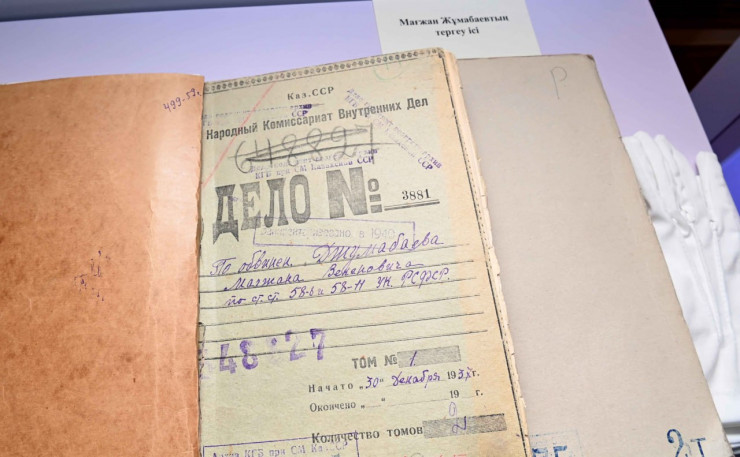 Мағжан Жұмабаевтың
тергеу ісі
499-59.
Р
Каз.ССР
ССР
Народный Комиссариат Внутренних Дел
648827
КГБ при СМ Казахской ССР
ССР
ДЕЛО №: 3881
в 1940
По обвинен. Джумабаева
Магжана Бекеновича
по ст.ст. 58-6 и 58-11 УК. РСФСР.
48 27
ТОМ № 1
Начато „30" декабря 1937г.
Окончено „ " 19 г.
Количество томов 2
КГБ при СМ Каз.ССР
2 т